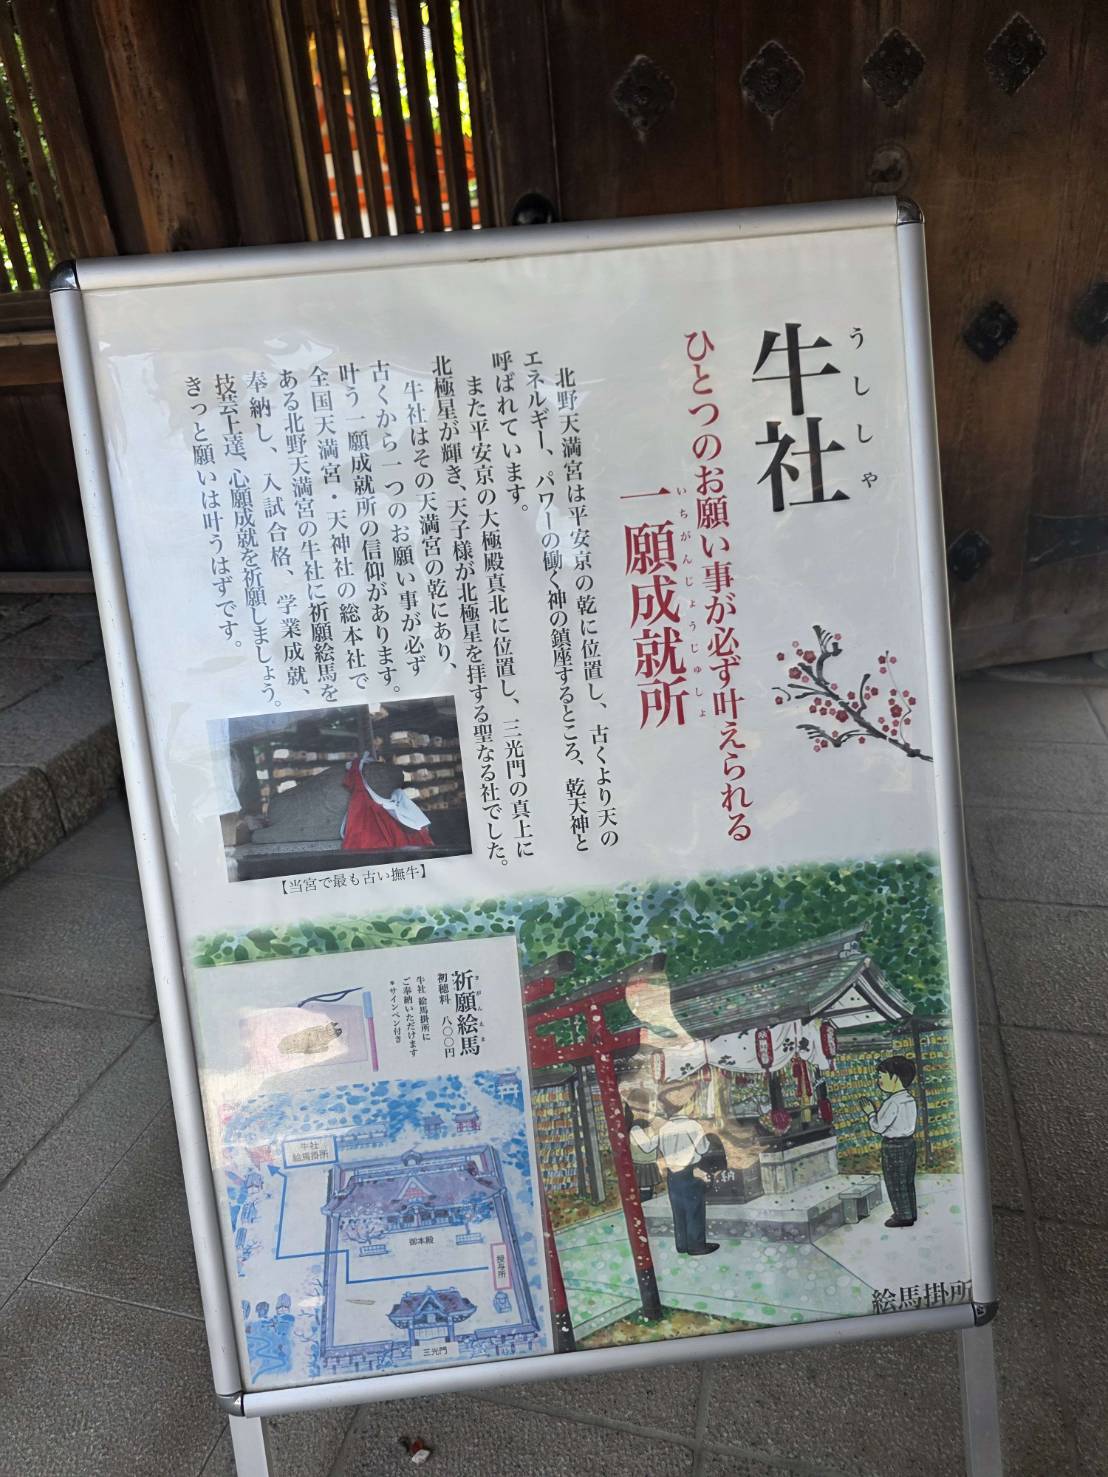 牛社
うししゃ
ひとつのお願い事が必ず叶えられる
一願成就所
いちがんじょうじゅしょ
北野天満宮は平安京の乾に位置し、古くより天の
エネルギー、パワーの働く神の鎮座するところ、乾天神と
呼ばれています。
また平安京の大極殿真北に位置し、三光門の真上に
北極星が輝き、天子様が北極星を拝する聖なる社でした。
牛社はその天満宮の乾にあり、
古くから一つのお願い事が必ず
叶う一願成就所の信仰があります。
全国天満宮・天神社の総本社で
ある北野天満宮の牛社に祈願絵馬を
奉納し、入試合格、学業成就、
技芸上達、心願成就を祈願しましょう。
きっと願いは叶うはずです。
【当宮で最も古い撫牛】
祈願絵馬
きがんえま
初穂料 八〇〇円
牛社 絵馬掛所に
ご奉納いただけます
*サインペン付き
牛社
絵馬掛所
御本殿
授与所
三光門
納
絵馬掛所